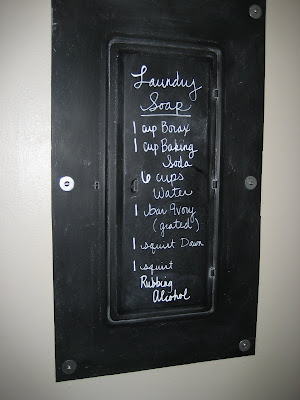 Laundry
Soap
1 cup Borax
1 cup Baking
Soda
6 cups
Water
1 bar Ivory
(grated)
1 squirt Dawn
1 squirt
Rubbing
Alcohol